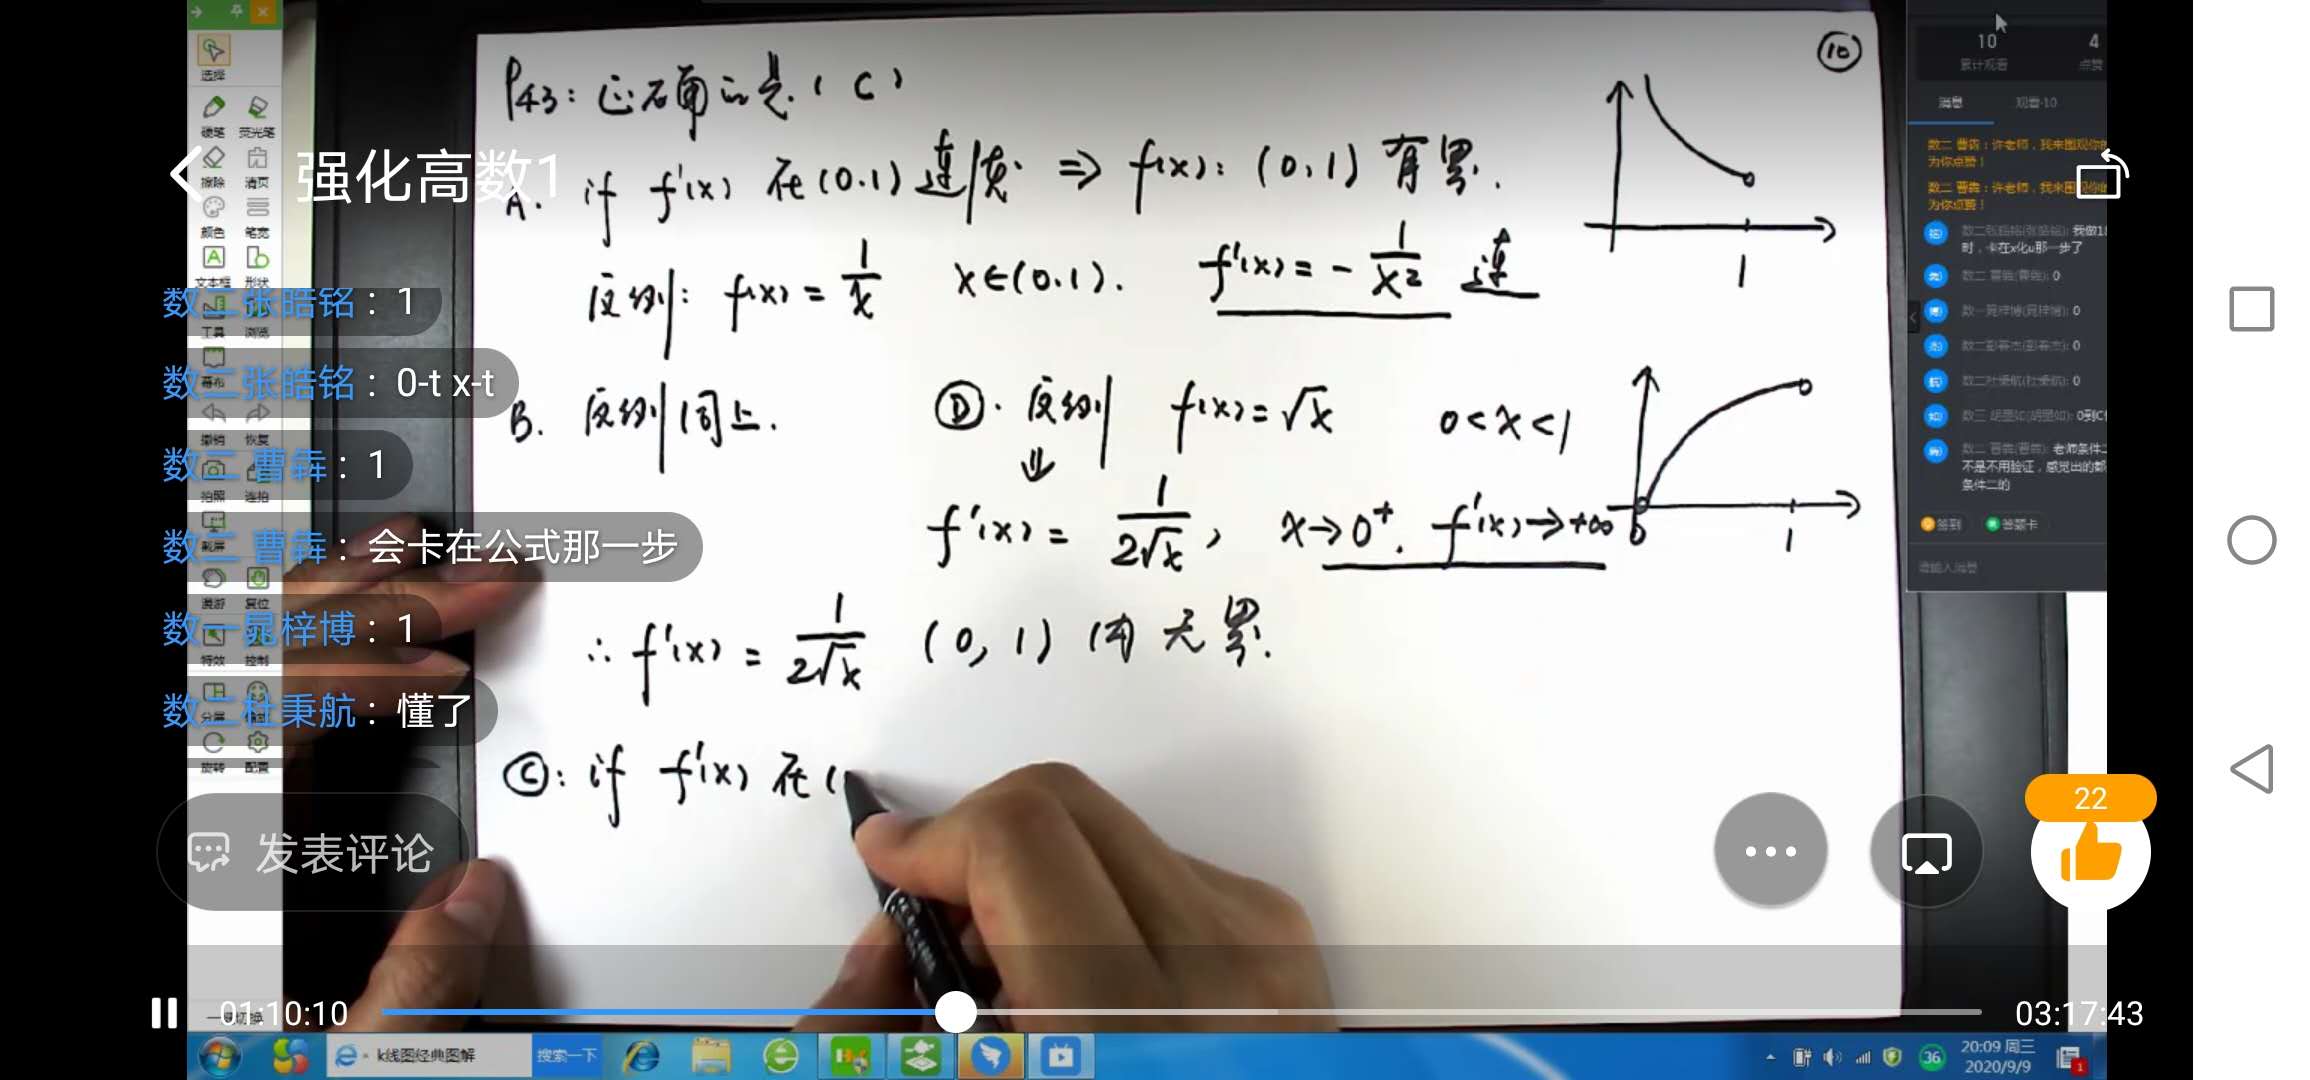 选择
硬笔 荧光笔
擦除 清页
颜色 笔宽
文本框 形状
工具 浏览
幕布
撤销 恢复
拍照 连拍
截屏
漫游 复位
特效 控制
分屏
旋转 配置
强化高数1
数二张皓铭：1
数二张皓铭：0-t x-t
数二 曹犇：1
数二 曹犇：会卡在公式那一步
数一晁梓博：1
数二杜秉航：懂了
发表评论
P43: 正确的是 ( C )
⑩
A. if f'(x) 在 (0.1) 连续 ⇒ f(x): (0,1) 有界.
反例: f(x) = 1/x x∈(0.1). f'(x) = -1/x² 连
1
B. 反例同上.
Ⓓ. 反例 f(x)=√x 0<x<1
⇓
f'(x) = 1/(2√x), x→0⁺. f'(x)→+∞
0 1
∴ f'(x) = 1/(2√x) (0,1) 内 无界.
Ⓒ: if f'(x) 在 (
10 4
累计观看 点赞
消息 观看·10
数二 曹犇：许老师，我来围观你的
为你点赞！
数二 曹犇：许老师，我来围观你的
为你点赞！
数二张皓铭(张皓铭): 我做1
时，卡在x化u那一步了
数二 曹犇(曹犇): 0
数一晁梓博(晁梓博): 0
数二彭春杰(彭春杰): 0
数二杜秉航(杜秉航): 0
0到
数二 曹犇(曹犇): 老师条件二
不是不用验证，感觉出的都
条件二的
签到 答题卡
请输入消息
22
01:10:10
03:17:43
k线图经典图解
搜索一下
36
20:09 周三
2020/9/9
1